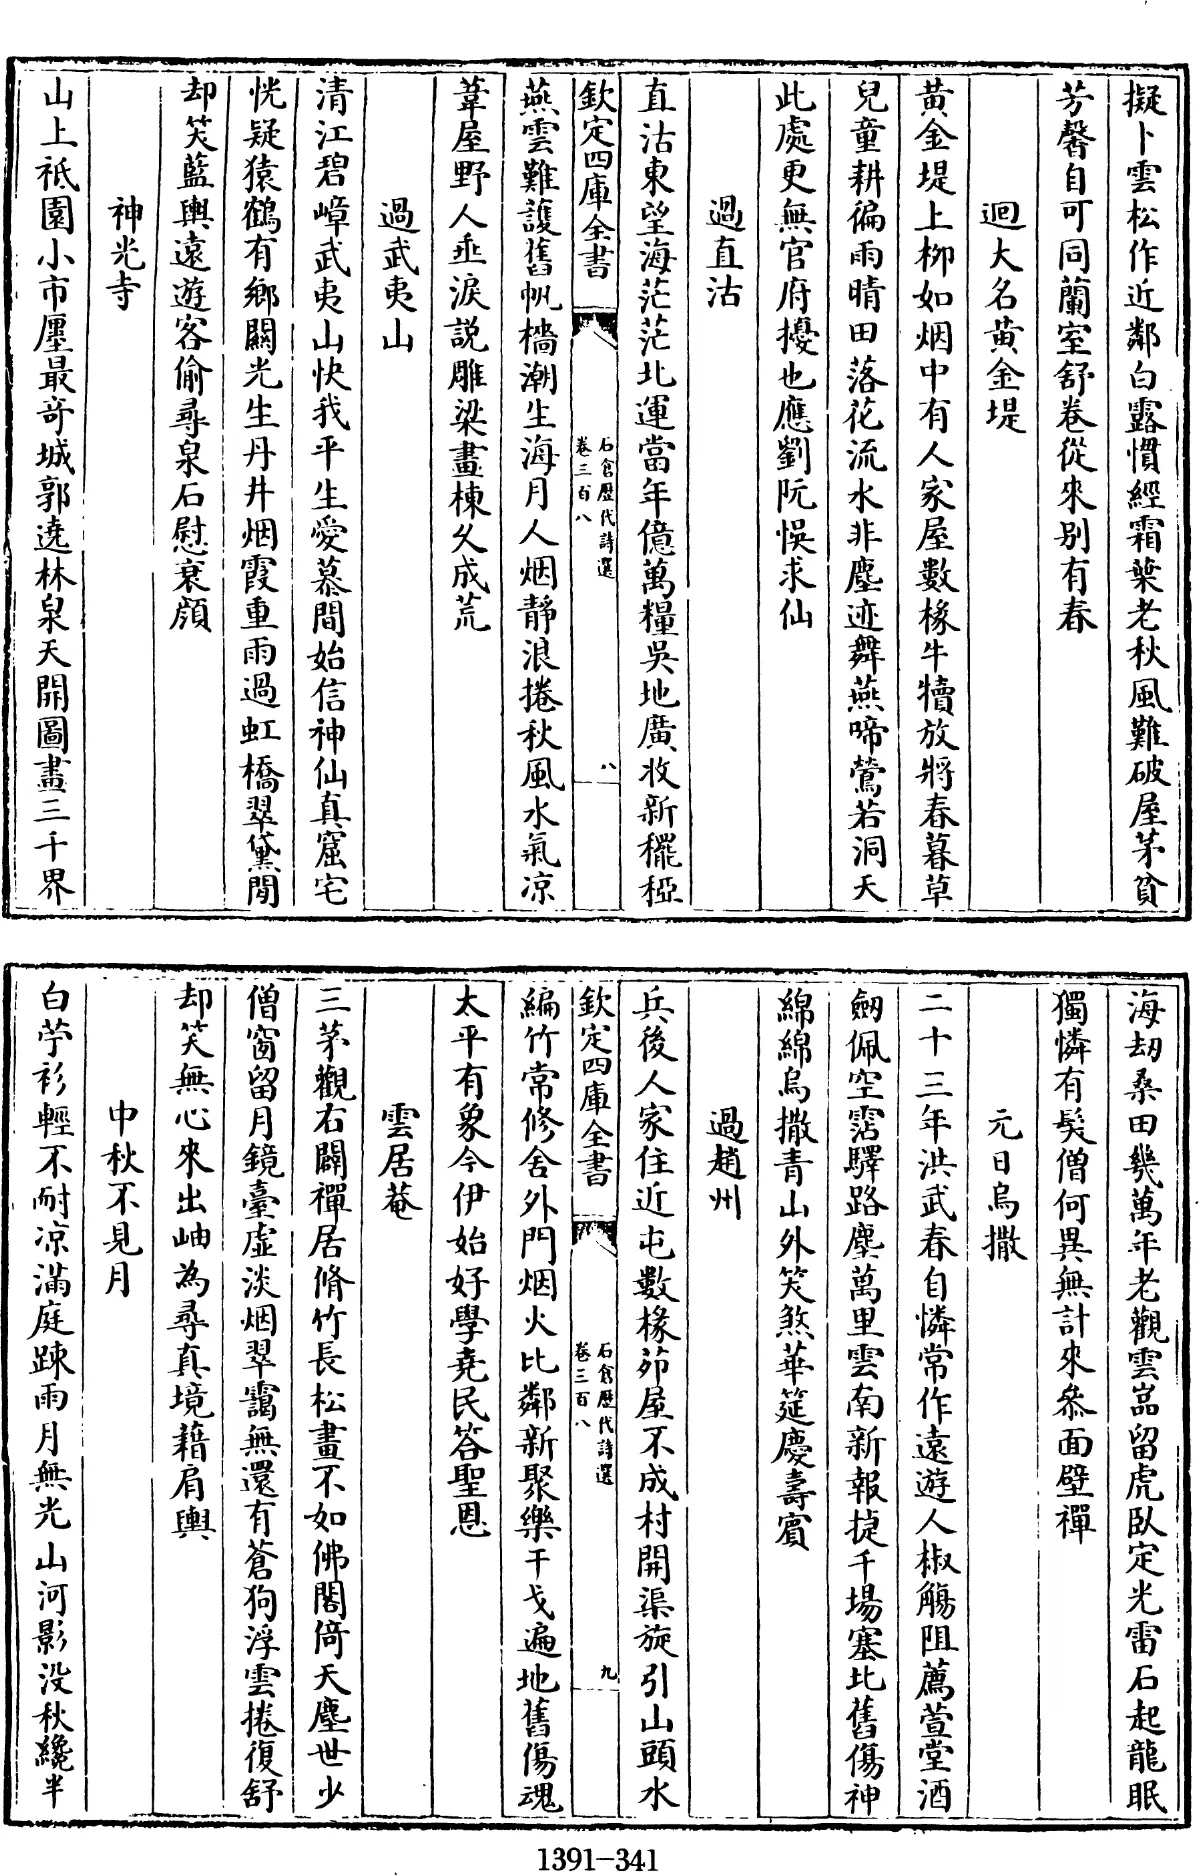 擬卜雲松作近鄰白露慣經霜葉老秋風難破屋茅貧
芳馨自可同蘭室舒卷從來别有春
迴大名黄金堤
黄金堤上栁如烟中有人家屋數椽牛犢放將春暮草
兒童耕徧雨晴田落花流水非塵迹舞燕啼鶯若洞天
此處更無官府擾也應劉阮悞求仙
過直沽
直沽東望海茫茫北運當年億萬糧吳地廣收新䆉稏
欽定四庫全書
石倉歴代詩選
卷三百八
八
燕雲難護舊帆檣潮生海月人烟静浪捲秋風水氣凉
葦屋野人垂淚説雕梁畫棟久成荒
過武夷山
清江碧嶂武夷山快我平生愛慕間始信神仙真窟宅
恍疑猿鶴有鄉關光生丹井烟霞重雨過虹橋翠黛閒
却笑藍輿遠遊客偷尋泉石慰衰顔
神光寺
山上祇園小市廛最竒城郭遶林泉天開圖畫三千界
海刼桑田幾萬年老觀雲嵓留虎臥定光雷石起龍眠
獨憐有髪僧何異無計來叅面壁禪
元日烏撒
二十三年洪武春自憐常作遠遊人椒觴阻薦萱堂酒
劒佩空霑驛路塵萬里雲南新報捷千場塞北舊傷神
綿綿烏撒青山外笑煞華筵慶壽賔
過趙州
兵後人家住近屯數椽茆屋不成村開渠旋引山頭水
欽定四庫全書
石倉歴代詩選
卷三百八
九
編竹常修舍外門烟火比鄰新聚樂干戈遍地舊傷魂
太平有象今伊始好學堯民答聖恩
雲居菴
三茅觀右闢禪居脩竹長松畫不如佛閣倚天塵世少
僧窗留月鏡臺虛淡烟翠靄無還有蒼狗浮雲捲復舒
却笑無心來出岫為尋真境藉肩輿
中秋不見月
白苧衫輕不耐凉滿庭踈雨月無光山河影没秋纔半
1391-341